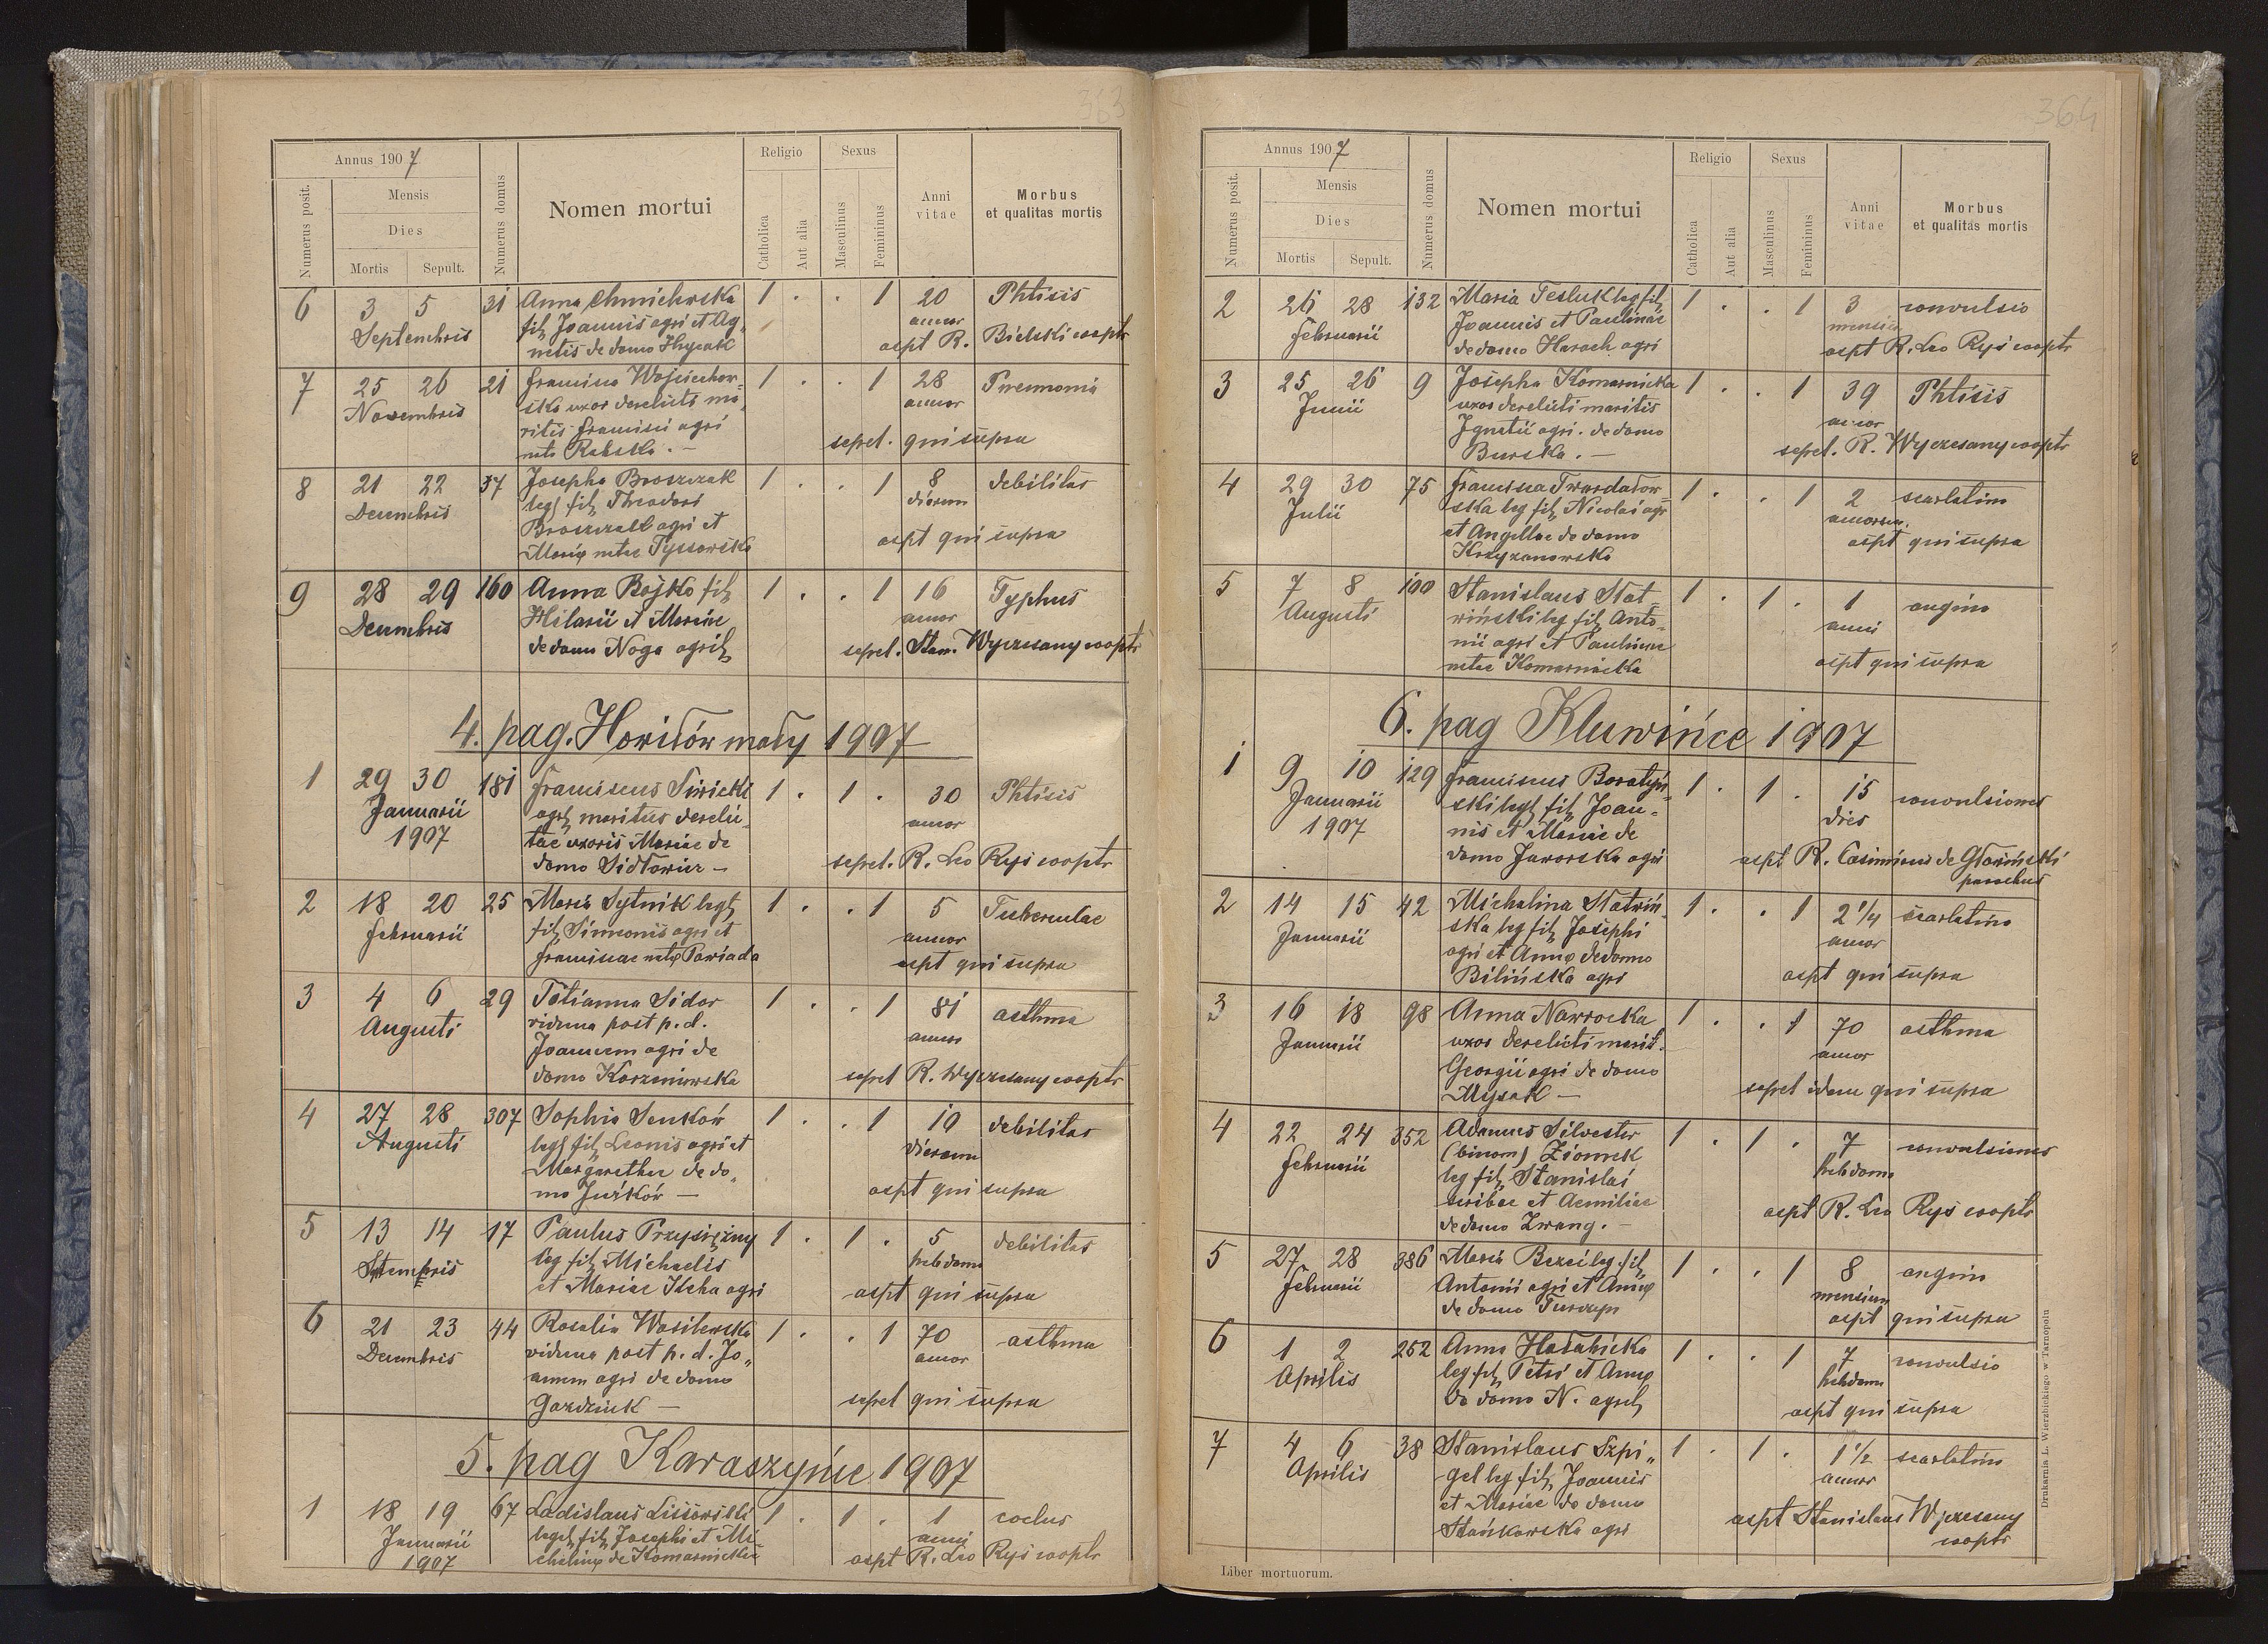 363
Annus 1907
Numerus posit.
Mensis
Dies
Mortis
Sepult.
Numerus domus
Nomen mortui
Religio
Catholica
Aut alia
Sexus
Masculinus
Femininus
Anni
vitae
Morbus
et qualitas mortis
6 3 5 31 Anna Chmielewska 1 . . 1 20 Phtisis
fil. Joannis agri et Ag- annor
Septembris netis de domo Hycak aspt R. Bielski cooptr
7 25 26 21 Francisca Wojciechow- 1 . . 1 28 Pneumonia
Novembris ska uxor derelicti ma- annor
ritis Francisci agri sepel. qui supra
nata Rabska. —
8 21 22 37 Josepha Broszczak 1 . . 1 8 debilitas
Decembris leg. fil. Theodori dierum
Broszczak agri et aspt qui supra
Marię natae Tyssowska
9 28 29 160 Anna Bojko fil. 1 . . 1 16 Typhus
Decembris Hilarii et Mariae annor
de domo Noga agril. sepel. Stan. Wyczesany cooptr
4. pag. Howiłów mały 1907
1 29 30 181 Franciscus Siwicki 1 . 1 . 30 Phtisis
Januarii agrl. maritus derelic- annor
1907 tae uxoris Mariae de
domo Sidłowicz — sepel. R. Leo Ryś cooptr
2 18 20 25 Maria Sytnik legt. 1 . . 1 5 Tuberculae
Februarii fil. Simeonis agri et annor
Franciscae natę Pawiada aspt qui supra
3 4 6 29 Tatianna Sidor 1 . . 1 81 asthma
Augusti vidua post p. d. annor
Joannem agri de
domo Korzeniowska sepel R. Wyczesany cooptr
4 27 28 307 Sophia Senków 1 . . 1 10 debilitas
Augusti leg. fil. Leonis agri et dierum
Margarethae de do-
mo Juśków — aspt qui supra
5 13 14 17 Paulus Przysiężny 1 . 1 . 5 debilitas
leg. fil. Michaelis hebdom
et Mariae Ilcha agri aspt qui supra
6 21 23 44 Rosalia Wasilewska 1 . . 1 70 asthma
Decembris vidua post p. d. Jo- annor
annem agri de domo
Gazdziuk — sepel qui supra
5. pag Karaszyńce 1907
1 18 19 67 Ladislaus Lissowski 1 . 1 . 1
Januarii legt. fil. Josephi et Mi- anni
1907 chelinę de Komarnicka aspt R. Leo Ryś cooptr
364
Annus 1907
Numerus posit.
Mensis
Dies
Mortis
Sepult.
Numerus domus
Nomen mortui
Religio
Catholica
Aut alia
Sexus
Masculinus
Femininus
Anni
vitae
Morbus
et qualitas mortis
2 26 28 132 Maria Tesluk leg fil. 1 . . 1 3 convulsio
Februarii Joannis et Paulinae mensium
de domo Harach agri aspt R. Leo Ryś cooptr
3 25 26 9 Josepha Komarnicka 1 . . 1 39 Phtisis
Junii uxor derelicti maritis annor
Ignatii agri. de domo sepel. R. Wyczesany cooptr
Burska. —
4 29 30 75 Francisca Twardadow- 1 . . 1 2 scarlatina
Julii ska leg fil. Nicolai agr annorum.
et Angellae de domo aspt qui supra
Krzyzanowska
5 7 8 100 Stanislaus Stat- 1 . 1 . 1 angina
Augusti wiński leg fil. Anto- anni
nii agri et Paulinae
natae Komarnicka aspt qui supra
6. pag Kluwińce 1907
1 9 10 129 Franciscus Boratyń- 1 . 1 . 15 convulsiones
Januarii ski legt. fil. Joan- dies
1907 nis et Mariae de
domo Jaworska agri aspt R. Casimirus de Głoziński
parochus
2 14 15 42 Michalina Statwiń- 1 . . 1 2 1/4 scarlatina
Januarii ska leg fil. Josephi annor
agri et Annę de domo
Bilińska agri aspt qui supra
3 16 18 98 Anna Nawrocka 1 . . 1 70 asthma
Januarii uxor derelicti marit. annor
Georgii agri de domo
Mysak — sepel idem qui supra
4 22 24 352 Adamus Silvester 1 . 1 . 7 convulsiones
Februarii (binom) Ziomek hebdom
leg fil. Stanislai
scribae et Aemiliae aspt R. Leo Ryś cooptr
de domo Zwang. —
5 27 28 386 Maria Bezci leg. fil. 1 . . 1 8 angina
Februarii Antonii agri et Annę mensium
de domo Turczyn aspt qui supra
6 1 2 252 Anna Haładicka 1 . . 1 7 convulsio
Aprilis leg fil. Petri et Annę hebdom
de domo N. agril. aspt qui supra
7 4 6 38 Stanislaus Szpi- 1 . 1 . 1 1/2 scarlatina
Aprilis gel leg fil. Joannis annor
et Mariae de domo
Stańkowska agri aspt Stanislaus Wyczesany
cooptr
Liber mortuorum.
Drukarnia L. Wierzbickiego w Tarnopolu